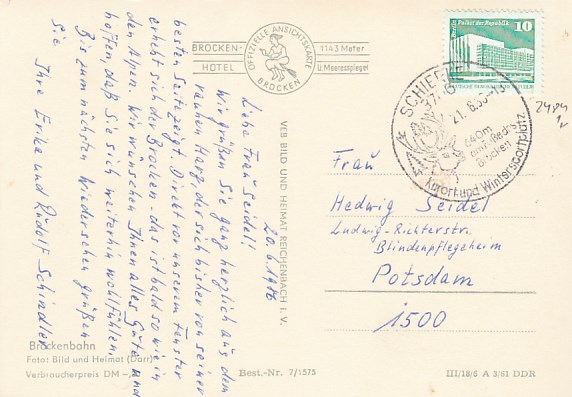 BROCKEN-
HOTEL
OFFIZIELLE ANSICHTSKARTE
BROCKEN
1143 Meter
ü. Meeresspiegel
Palast der Republik
10
DEUTSCHE DEMOKRATISCHE REPUBLIK
SCHIERKE
3706
21.-6.86-
640m
am Fuße des
Brocken
Kurort und Wintersportplatz
20.6.1986
Liebe Frau Seidel!
Wir grüßen Sie ganz herzlich aus dem
rauhen Harz, der sich bisher von seiner
besten Seite zeigt. Direkt vor unserem Fenster
erhebt sich der Brocken - das ist bald so wie in
den Alpen. Wir wünschen Ihnen alles Gute und
hoffen, daß Sie sich weiterhin wohlfühlen.
Bis zum nächsten Wiedersehen grüßen
Sie
Ihre Erika und Rudolf Schindler
VEB BILD UND HEIMAT REICHENBACH I. V.
Frau
Hedwig Seidel
Ludwig-Richterstr.
Blindenpflegeheim
Potsdam
1500
Brockenbahn
Foto: Bild und Heimat (Dorr)
Verbraucherpreis DM -,
Best.-Nr. 7/1575
III/18/6 A 3/61 DDR